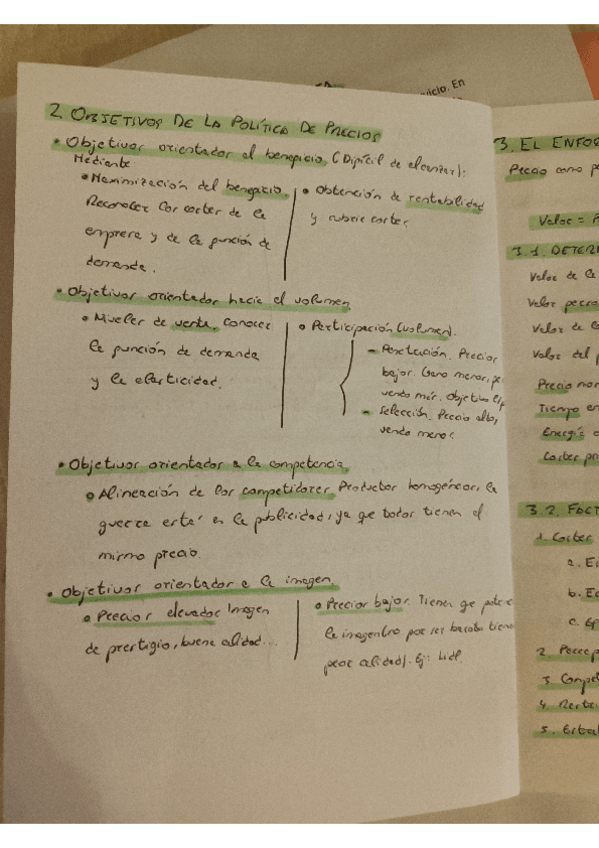 vicio. En
2. OBJETIVOS DE LA POLÍTICA DE PRECIOS
• Objetivos orientados al beneficio. (Difícil de alcanzar):
Mediante
• Maximización del beneficio.
Reconocer los costes de la
empresa y de la función de
demanda.
• Obtención de rentabilidad
y cubrir costes
• Objetivos orientados hacia el volumen
• Niveles de venta. Conocer
la función de demanda
y la elasticidad.
• Participación (volumen).
- Penetración. Precios
bajos. Gano menos, pe
vendo más. Objetivo
- Selección. Precio alto,
vendo menos.
• Objetivos orientados a la competencia
• Alineación de los competidores. Productos homogéneos, la
guerra está en la publicidad, ya que todos tienen el
mismo precio.
• Objetivos orientados a la imagen.
• Precios elevados Imagen
de prestigio, buena calidad...
• Precios bajos. Tienen qe
la imagen (no por ser barato tiene
peor calidad). Ej: Lidl.
3. EL ENFO
Precio como p
Valor =
3.1. DETER
Valor de la
Valor
Valor de
Valor del
Precio
Tiempo en
Energía
Costes
3.2. FACT
1. Costes
a.
b.
c.
2.
3. Compet
4.
5.